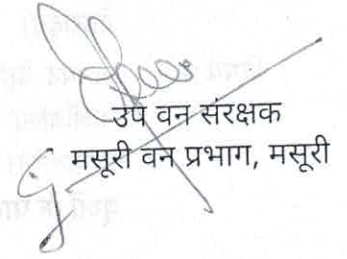 उप वन संरक्षक
मसूरी वन प्रभाग, मसूरी